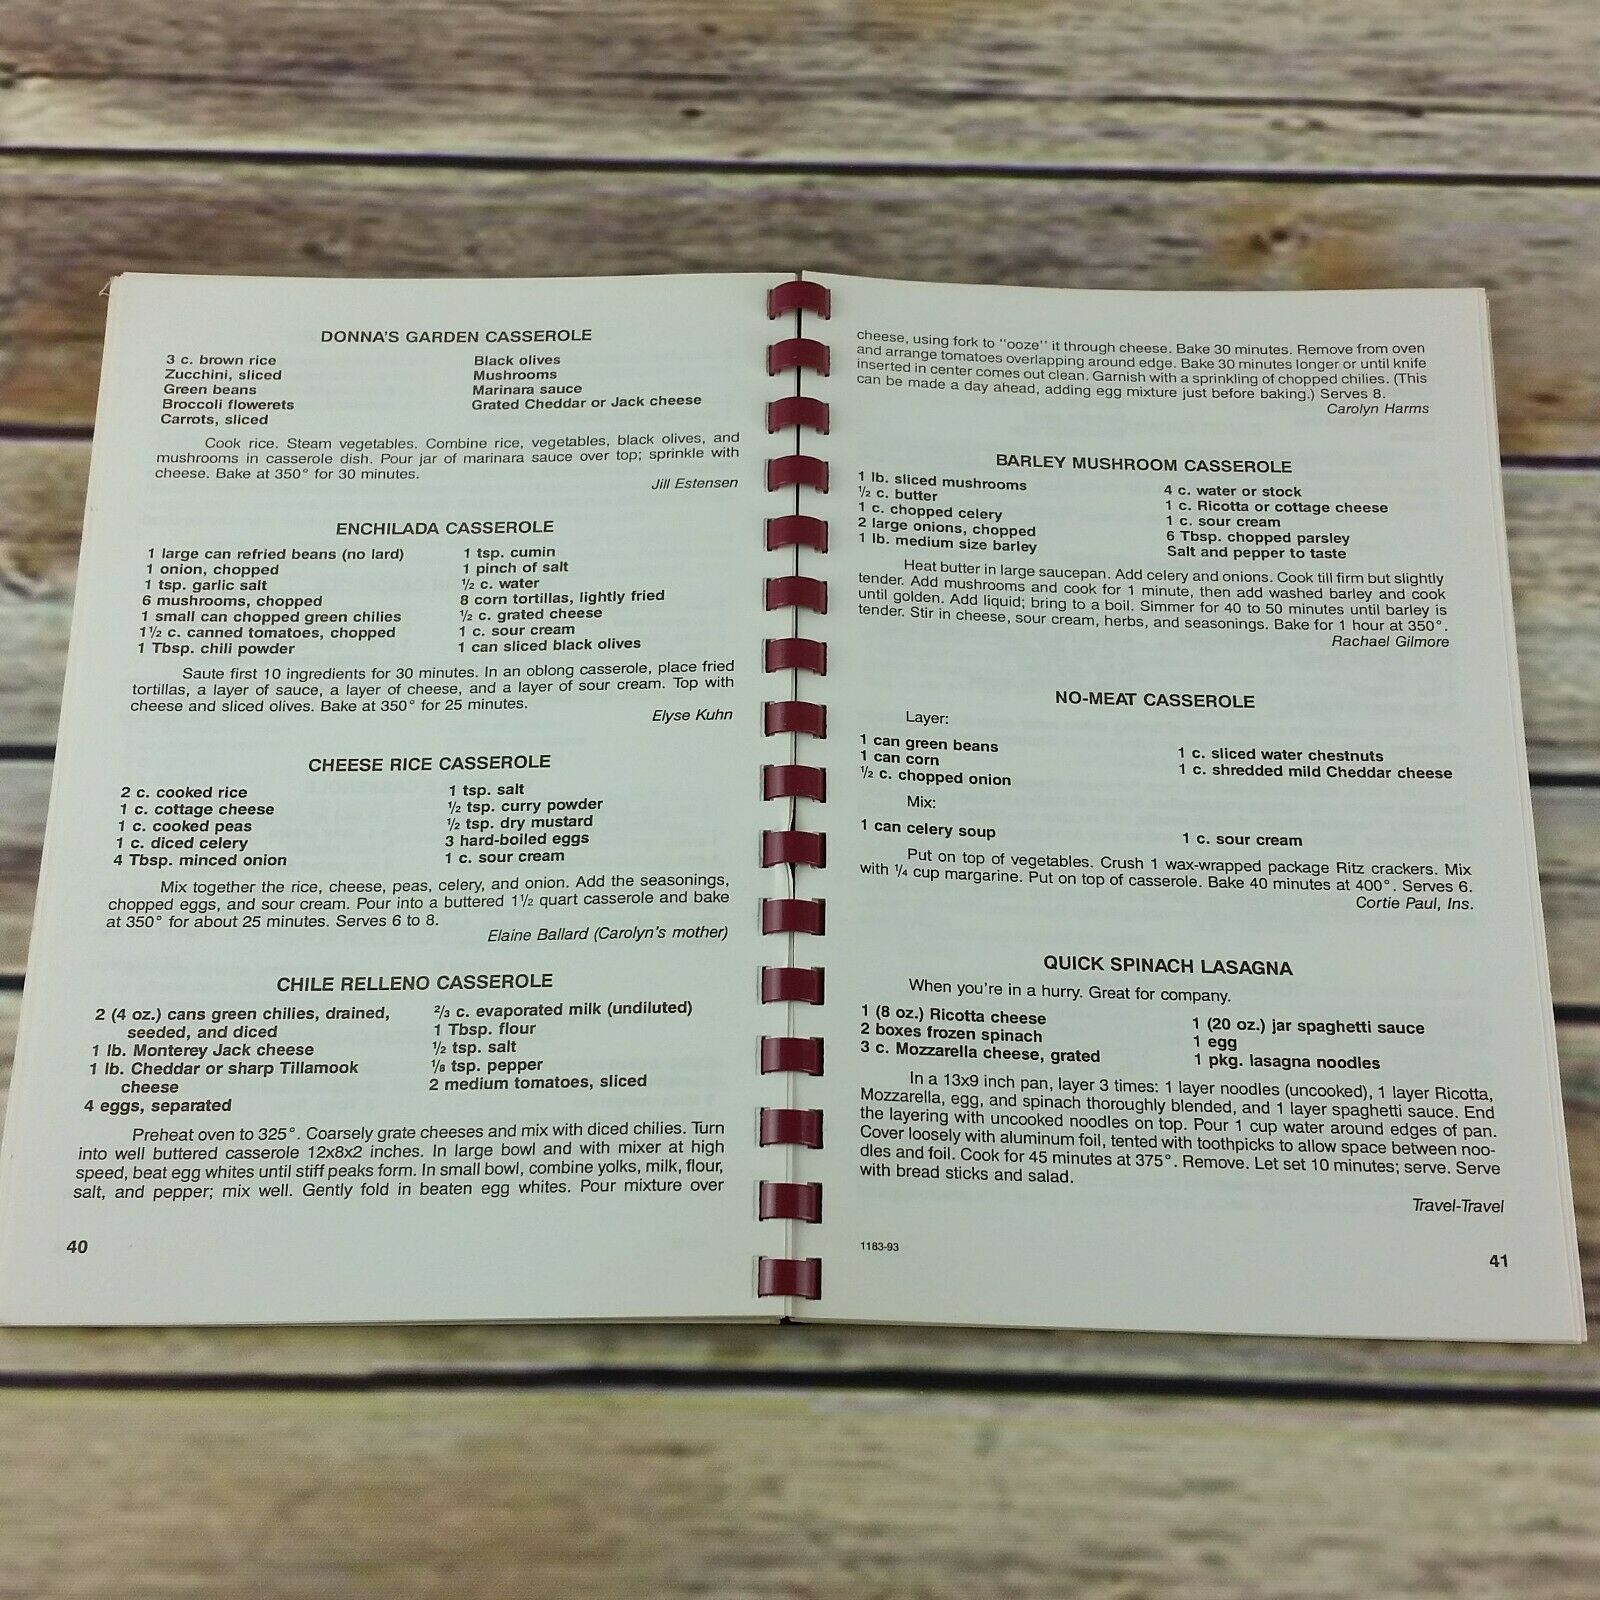 DONNA'S GARDEN CASSEROLE
3 c. brown rice
Zucchini, sliced
Green beans
Broccoli flowerets
Carrots, sliced
Black olives
Mushrooms
Marinara sauce
Grated Cheddar or Jack cheese
Cook rice. Steam vegetables. Combine rice, vegetables, black olives, and
mushrooms in casserole dish. Pour jar of marinara sauce over top; sprinkle with
cheese. Bake at 350° for 30 minutes.
Jill Estensen
ENCHILADA CASSEROLE
1 large can refried beans (no lard)
1 onion, chopped
1 tsp. garlic salt
6 mushrooms, chopped
1 small can chopped green chilies
1½ c. canned tomatoes, chopped
1 Tbsp. chili powder
1 tsp. cumin
1 pinch of salt
½ c. water
8 corn tortillas, lightly fried
½ c. grated cheese
1 c. sour cream
1 can sliced black olives
Saute first 10 ingredients for 30 minutes. In an oblong casserole, place fried
tortillas, a layer of sauce, a layer of cheese, and a layer of sour cream. Top with
cheese and sliced olives. Bake at 350° for 25 minutes.
Elyse Kuhn
CHEESE RICE CASSEROLE
2 c. cooked rice
1 c. cottage cheese
1 c. cooked peas
1 c. diced celery
4 Tbsp. minced onion
1 tsp. salt
½ tsp. curry powder
½ tsp. dry mustard
3 hard-boiled eggs
1 c. sour cream
Mix together the rice, cheese, peas, celery, and onion. Add the seasonings,
chopped eggs, and sour cream. Pour into a buttered 1½ quart casserole and bake
at 350° for about 25 minutes. Serves 6 to 8.
Elaine Ballard (Carolyn's mother)
CHILE RELLENO CASSEROLE
2 (4 oz.) cans green chilies, drained,
seeded, and diced
1 lb. Monterey Jack cheese
1 lb. Cheddar or sharp Tillamook
cheese
4 eggs, separated
⅔ c. evaporated milk (undiluted)
1 Tbsp. flour
½ tsp. salt
⅛ tsp. pepper
2 medium tomatoes, sliced
Preheat oven to 325°. Coarsely grate cheeses and mix with diced chilies. Turn
into well buttered casserole 12x8x2 inches. In large bowl and with mixer at high
speed, beat egg whites until stiff peaks form. In small bowl, combine yolks, milk, flour,
salt, and pepper; mix well. Gently fold in beaten egg whites. Pour mixture over
40
cheese, using fork to "ooze" it through cheese. Bake 30 minutes. Remove from oven
and arrange tomatoes overlapping around edge. Bake 30 minutes longer or until knife
inserted in center comes out clean. Garnish with a sprinkling of chopped chilies. (This
can be made a day ahead, adding egg mixture just before baking.) Serves 8.
Carolyn Harms
BARLEY MUSHROOM CASSEROLE
1 lb. sliced mushrooms
½ c. butter
1 c. chopped celery
2 large onions, chopped
1 lb. medium size barley
4 c. water or stock
1 c. Ricotta or cottage cheese
1 c. sour cream
6 Tbsp. chopped parsley
Salt and pepper to taste
Heat butter in large saucepan. Add celery and onions. Cook till firm but slightly
tender. Add mushrooms and cook for 1 minute, then add washed barley and cook
until golden. Add liquid; bring to a boil. Simmer for 40 to 50 minutes until barley is
tender. Stir in cheese, sour cream, herbs, and seasonings. Bake for 1 hour at 350°.
Rachael Gilmore
NO-MEAT CASSEROLE
Layer:
1 can green beans
1 can corn
½ c. chopped onion
1 c. sliced water chestnuts
1 c. shredded mild Cheddar cheese
Mix:
1 can celery soup
1 c. sour cream
Put on top of vegetables. Crush 1 wax-wrapped package Ritz crackers. Mix
with ¼ cup margarine. Put on top of casserole. Bake 40 minutes at 400°. Serves 6.
Cortie Paul, Ins.
QUICK SPINACH LASAGNA
When you're in a hurry. Great for company.
1 (8 oz.) Ricotta cheese
2 boxes frozen spinach
3 c. Mozzarella cheese, grated
1 (20 oz.) jar spaghetti sauce
1 egg
1 pkg. lasagna noodles
In a 13x9 inch pan, layer 3 times: 1 layer noodles (uncooked), 1 layer Ricotta,
Mozzarella, egg, and spinach thoroughly blended, and 1 layer spaghetti sauce. End
the layering with uncooked noodles on top. Pour 1 cup water around edges of pan.
Cover loosely with aluminum foil, tented with toothpicks to allow space between noo-
dles and foil. Cook for 45 minutes at 375°. Remove. Let set 10 minutes; serve. Serve
with bread sticks and salad.
Travel-Travel
1183-93
41